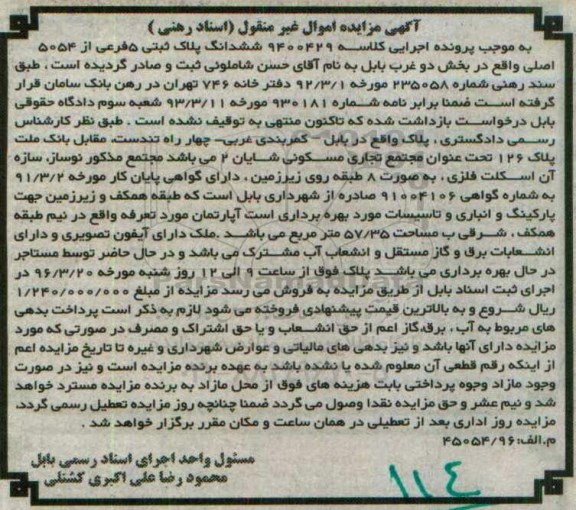 آگهی مزایده اموال غیر منقول (اسناد رهنی)
به موجب پرونده اجرایی کلاسه ۹۴۰۰۴۲۹ ششدانگ پلاک ثبتی ۵فرعی از ۵۰۵۴
اصلی واقع در بخش دو غرب بابل به نام آقای حسن شاملوئی ثبت و صادر گردیده است ، طبق
سند رهنی شماره ۲۳۵۰۵۸ مورخه ۹۲/۳/۱ دفتر خانه ۷۴۶ تهران در رهن بانک سامان قرار
گرفته است ضمنا برابر نامه شماره ۹۳۰۱۸۱ مورخه ۹۳/۳/۱۱ شعبه سوم دادگاه حقوقی
بابل درخواست بازداشت شده که تاکنون منتهی به توقیف نشده است . طبق نظر کارشناس
رسمی دادگستری ، پلاک واقع در بابل - کمربندی غربی- چهار راه تندست، مقابل بانک ملت
پلاک ۱۲۶ تحت عنوان مجتمع تجاری مسکونی شایان ۲ می باشد مجتمع مذکور نوساز، سازه
آن اسکلت فلزی ، به صورت ۸ طبقه روی زیرزمین ، دارای گواهی پایان کار مورخه ۹۱/۳/۲
به شماره گواهی ۹۱۰۰۴۱۰۶ صادره از شهرداری بابل است که طبقه همکف و زیرزمین جهت
پارکینگ و انباری و تاسیسات مورد بهره برداری است آپارتمان مورد تعرفه واقع در نیم طبقه
همکف ، شرقی ب مساحت ۵۷/۳۵ متر مربع می باشد .ملک دارای آیفون تصویری و دارای
انشعابات برق و گاز مستقل و انشعاب آب مشترک می باشد و در حال حاضر توسط مستاجر
در حال بهره برداری می باشد پلاک فوق از ساعت ۹ الی ۱۲ روز شنبه مورخه ۹۶/۳/۲۰ در
اجرای ثبت اسناد بابل از طریق مزایده به فروش می رسد مزایده از مبلغ ۱/۲۴۰/۰۰۰/۰۰۰
ریال شروع و به بالاترین قیمت پیشنهادی فروخته می شود لازم به ذکر است پرداخت بدهی
های مربوط به آب ، برق،گاز اعم از حق انشعاب و یا حق اشتراک و مصرف در صورتی که مورد
مزایده دارای آنها باشد و نیز بدهی های مالیاتی و عوارض شهرداری و غیره تا تاریخ مزایده اعم
از اینکه رقم قطعی آن معلوم شده یا نشده باشد به عهده برنده مزایده است و نیز در صورت
وجود مازاد وجوه پرداختی بابت هزینه های فوق از محل مازاد به برنده مزایده مسترد خواهد
شد و نیم عشر و حق مزایده نقدا وصول می گردد ضمنا چنانچه روز مزایده تعطیل رسمی گردد،
مزایده روز اداری بعد از تعطیلی در همان ساعت و مکان مقرر برگزار خواهد شد .
م.الف:۴۵۰۵۴/۹۶
مسئول واحد اجرای اسناد رسمی بابل
محمود رضا علی اکبری کشتلی
۱۱۴